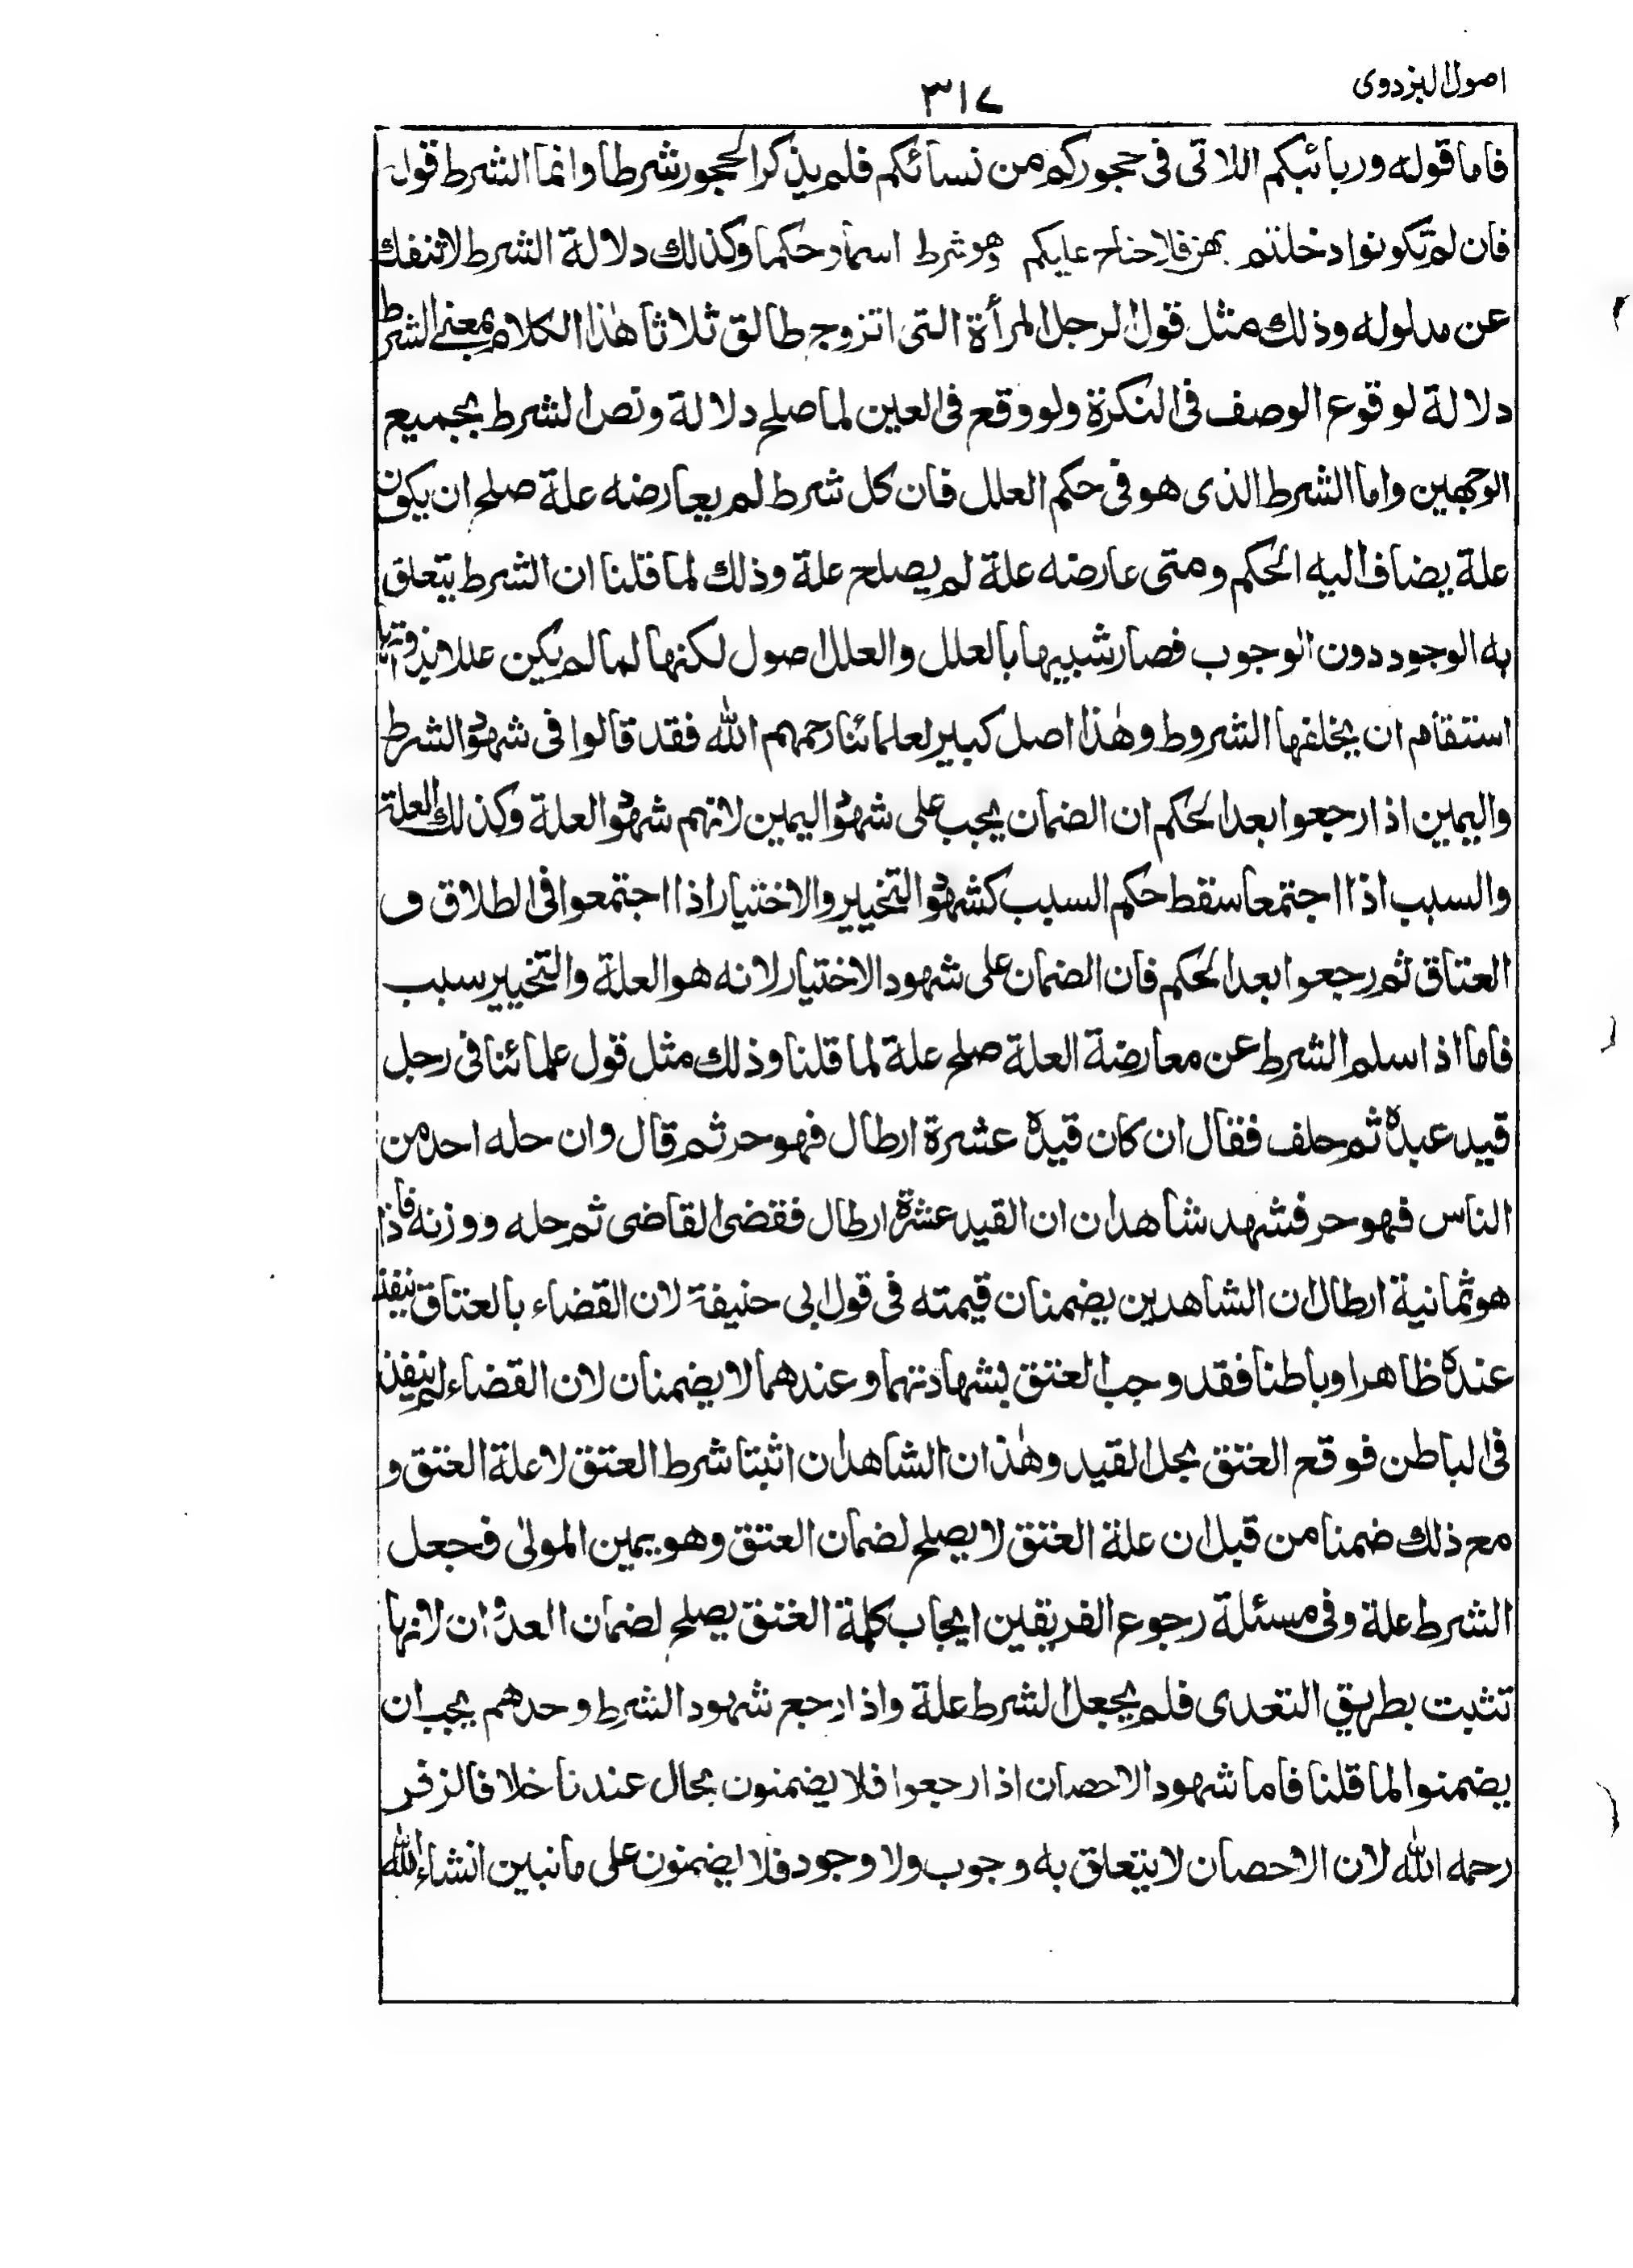 اصول البزدوى
٣١٧
فاما قوله وربائبكم اللاتى فى حجوركم من نسائكم فلم يذكر الحجور شرطا وانما الشرط قوله
فان لم تكونوا دخلتم بهن فلا جناح عليكم وهو شرط اسما وحكما وكذلك دلالة الشرط لا تنفك
عن مدلوله وذلك مثل قول الرجل المرأة التى اتزوج طالق ثلاثا هٰذا الكلام بمعنى الشرط
دلالة لوقوع الوصف فى النكرة ولو وقع فى العين لما صلح دلالة ونص الشرط بجميع
الوجهين واما الشرط الذى هو فى حكم العلل فان كل شرط لم يعارضه علة صلح ان يكون
علة يضاف اليه الحكم ومتى عارضه علة لم يصلح علة وذلك لما قلنا ان الشرط يتعلق
به الوجود دون الوجوب فصار شبيها بالعلل والعلل اصول لكنها لما لم يكن عللا بذواتها
استقام ان يخلفها الشروط وهٰذا اصل كبير لعلمائنا رحمهم الله فقد قالوا فى شهود الشرط
واليمين اذا رجعوا بعد الحكم ان الضمان يجب على شهود اليمين لانهم شهود العلة وكذلك العلة
والسبب اذا اجتمعا سقط حكم السبب كشهود التخيير والاختيار اذا اجتمعوا فى الطلاق و
العتاق ثم رجعوا بعد الحكم فان الضمان على شهود الاختيار لانه هو العلة والتخيير سبب
فاما اذا سلم الشرط عن معارضة العلة صلح علة لما قلنا وذلك مثل قول علمائنا فى رجل
قيد عبده ثم حلف فقال ان كان قيده عشرة ارطال فهو حر ثم قال وان حله احد من
الناس فهو حر فشهد شاهدان ان القيد عشرة ارطال فقضى القاضى ثم حله ووزنه فاذا
هو ثمانية ارطال ان الشاهدين يضمنان قيمته فى قول ابى حنيفة لان القضاء بالعتاق ينفذ
عنده ظاهرا وباطنا فقد وجب العتق بشهادتهما وعندهما لا يضمنان لان القضاء لم ينفذ
فى الباطن فوقع العتق بحل القيد وهٰذان الشاهدان اثبتا شرط العتق لا علة العتق و
مع ذلك ضمنا من قبل ان علة العتق لا يصلح لضمان العتق وهو يمين المولىٰ فجعل
الشرط علة وفى مسئلة رجوع الفريقين ايجاب كلمة العتق يصلح لضمان العدوان لانها
تثبت بطريق التعدى فلم يجعل الشرط علة واذا رجع شهود الشرط وحدهم يجب ان
يضمنوا لما قلنا فاما شهود الاحصان اذا رجعوا فلا يضمنون بحال عندنا خلافا لزفر
رحمه الله لان الاحصان لا يتعلق به وجوب ولا وجود فلا يضمنون على ما نبين انشاء الله